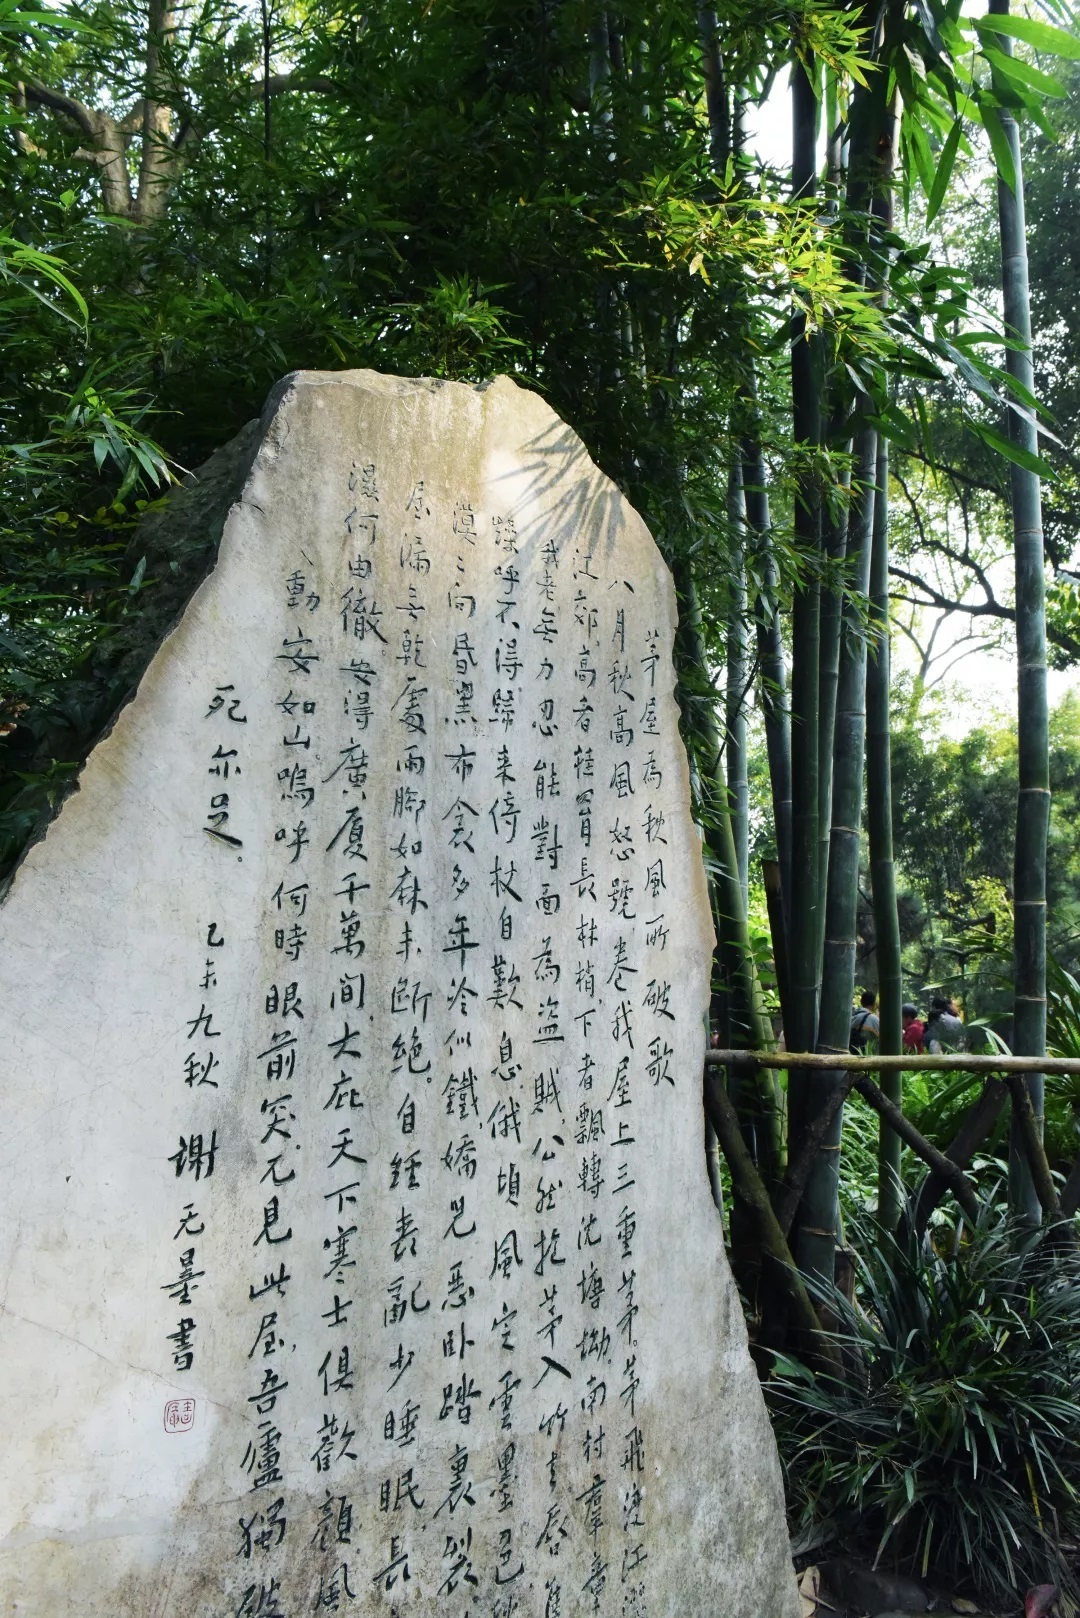 茅屋為秋風所破歌
八月秋高風怒號卷我屋上三重茅。茅飛渡江灑
江郊高者挂罥長林梢下者飄轉沈塘坳南村羣童
我老無力忍能對面為盜賊公然抱茅入竹去唇焦
燥呼不得歸来倚杖自歎息俄頃風定雲墨色秋
漠〻向昏黑布衾多年冷似鐵嬌兒惡卧踏裏裂
屋漏無乾處雨脚如麻未斷絶。自經喪亂少睡眠長
濕何由徹安得廣廈千萬間大庇天下寒士俱歡顔風
不動安如山嗚呼何時眼前突兀見此屋吾廬獨破
死亦足。
乙未九秋
谢无量書